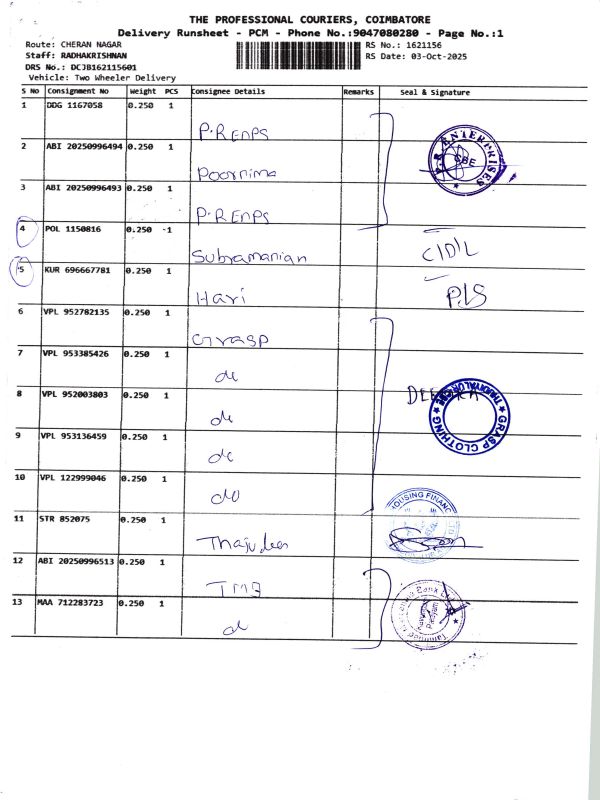 THE PROFESSIONAL COURIERS, COIMBATORE
Delivery Runsheet - PCM - Phone No.:9047080280 - Page No.:1
Route: CHERAN NAGAR
Staff: RADHAKRISHNAN
DRS No.: DCJB162115601
Vehicle: Two Wheeler Delivery
RS No.: 1621156
RS Date: 03-Oct-2025
S No Consignment No Weight PCS Consignee Details Remarks Seal & Signature
1 DDG 1167058 0.250 1
P.R ENPS
2 ABI 20250996494 0.250 1
Poornima
3 ABI 20250996493 0.250 1
P.R ENPS
P.R. ENTERPRISES CBE
4 POL 1150816 0.250 1
Subramanian
5 KUR 696667781 0.250 1
Hari
6 VPL 952782135 0.250 1
Grasp
7 VPL 953385426 0.250 1
do
8 VPL 952003803 0.250 1
do
GRASP CLOTHING
9 VPL 953136459 0.250 1
do
10 VPL 122999046 0.250 1
do
11 STR 852075 0.250 1
HOUSING FINANC
12 ABI 20250996513 0.250 1
TMB
13 MAA 712283723 0.250 1
d
Bank